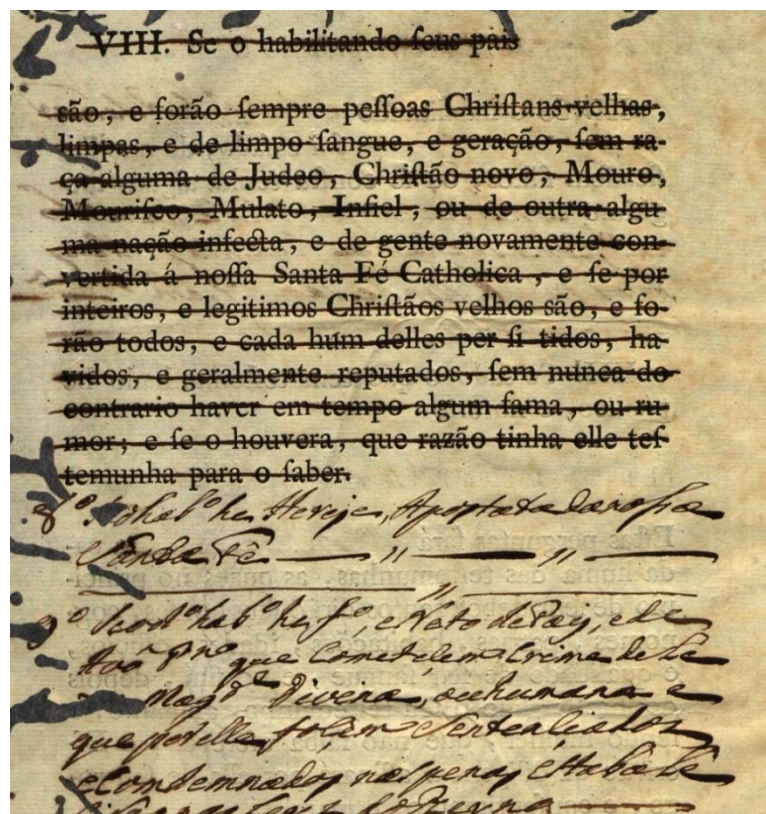 VIII. Se o habilitando ſeus pais
são, e forão ſempre peſſoas Chriſtans velhas,
limpas, e de limpo ſangue, e geração, ſem ra-
ça alguma de Judeo, Chriſtão novo, Mouro,
Mouriſco, Mulato, Infiel, ou de outra algu
ma nação infecta, e de gente novamente con-
vertida á noſſa Santa Fé Catholica, e ſe por
inteiros, e legitimos Chriſtãos velhos são, e fo-
rão todos, e cada hum delles per ſi tidos, ha-
vidos, e geralmente reputados, ſem nunca do
contrario haver em tempo algum fama, ou ru-
mor; e ſe o houvera, que razão tinha elle teſ-
temunha para o ſaber.
8º Se o habº he Hereje, Apostata da nossa
Santa Fê
9º Se o dº habº he fº, e Neto de Pay, e de
Avô que Cometesem Crime de Le
Magde Divina, ou humana e
que por elle foſsem Sentenciados
e Condemnados nas penas Estabale